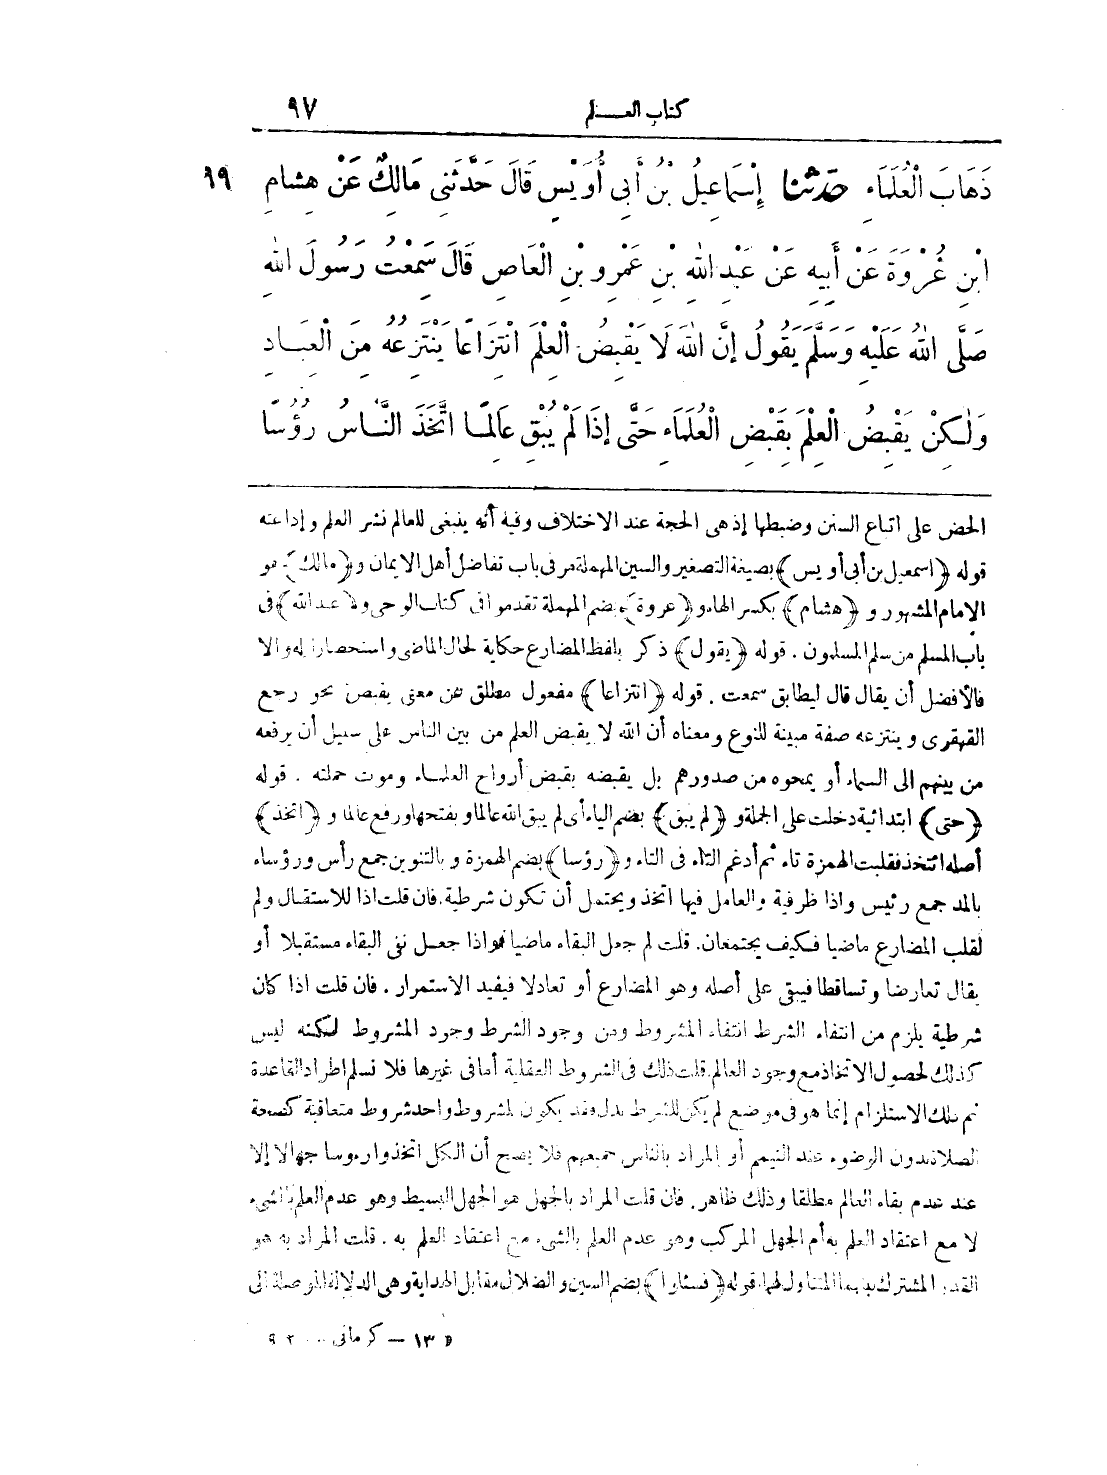 ٩٧ كتاب العلم
ذَهَابَ الْعُلَمَاءِ حَدَّثَنَا إِسْمَاعِيلُ بْنُ أَبِي أُوَيْسٍ قَالَ حَدَّثَنِي مَالِكٌ عَنْ هِشَامِ ٩٩
ابْنِ عُرْوَةَ عَنْ أَبِيهِ عَنْ عَبْدِ اللهِ بْنِ عَمْرِو بْنِ الْعَاصِ قَالَ سَمِعْتُ رَسُولَ اللهِ
صَلَّى اللهُ عَلَيْهِ وَسَلَّمَ يَقُولُ إِنَّ اللهَ لَا يَقْبِضُ الْعِلْمَ انْتِزَاعًا يَنْتَزِعُهُ مِنَ الْعِبَادِ
وَلَكِنْ يَقْبِضُ الْعِلْمَ بِقَبْضِ الْعُلَمَاءِ حَتَّى إِذَا لَمْ يُبْقِ عَالِمًا اتَّخَذَ النَّاسُ رُؤُسًا
الحض على اتباع السنن وضبطها إذ هي الحجة عند الاختلاف وفيه أنه ينبغي للعالم نشر العلم وإذاعته
قوله ﴿اسمعيل بن أبي أويس﴾ بصيغة التصغير والسين المهملة مر في باب تفاضل أهل الايمان و﴿مالك﴾ هو
الامام المشهور و ﴿هشام﴾ بكسر الهاء و﴿عروة﴾ بضم المهملة تقدموا في كتاب الوحى و﴿عبد الله﴾ في
باب المسلم من سلم المسلمون . قوله ﴿يقول﴾ ذكر بلفظ المضارع حكاية لحال الماضى واستحضارا له والا
فالأفضل أن يقال قال ليطابق سمعت . قوله ﴿انتزاعا﴾ مفعول مطلق عن معنى يقبض نحو رجع
القهقرى وينتزعه صفة مبينة للنوع ومعناه أن الله لا يقبض العلم من بين الناس على سبيل أن يرفعه
من بينهم الى السماء أو يمحوه من صدورهم بل يقبضه بقبض أرواح العلماء وموت حملته . قوله
﴿حتى﴾ ابتدائية دخلت على الجملة و ﴿لم يبق﴾ بضم الياء أى لم يبق الله عالما وبفتحها ورفع عالما و ﴿اتخذ﴾
أصله ائتخذ فقلبت الهمزة تاء ثم أدغم التاء في التاء و﴿رؤسا﴾ بضم الهمزة وبالتنوين جمع رأس ورؤساء
بالمد جمع رئيس واذا ظرفية والعامل فيها اتخذ ويحتمل أن تكون شرطية. فان قلت اذا للاستقبال ولم
لقلب المضارع ماضيا فكيف يجتمعان. قلت لم جعل البقاء ماضيا واذا جعل نفى البقاء مستقبلا أو
يقال تعارضا وتساقطا فيبقى على أصله وهو المضارع أو تعادلا فيفيد الاستمرار . فان قلت اذا كان
شرطية يلزم من انتفاء الشرط انتفاء المشروط ومن وجود الشرط وجود المشروط لكنه ليس
كذلك لحصول الاتخاذ مع وجود العالم. قلت ذلك في الشروط العقلية أما في غيرها فلا نسلم اطراد القاعدة
ثم ذلك الاستلزام إنما هو في موضع لم يكن للشرط بدل فقد يكون لمشروط واحد شروط متعاقبة كصحة
الصلاة بدون الوضوء عند التيمم أو المراد بالناس جميعهم فلا يصح أن الكل اتخذوا رءوسا جهالا إلا
عند عدم بقاء العالم مطلقا وذلك ظاهر. فان قلت المراد بالجهل هو الجهل البسيط وهو عدم العلم بالشيء
لا مع اعتقاد العلم به أم الجهل المركب وهو عدم العلم بالشيء مع اعتقاد العلم به . قلت المراد به هو
القدر المشترك بينهما المتناول لهما. قوله ﴿فسئلوا﴾ بضم السين والضلال مقابل الهداية وهى الدلالة الموصلة الى
١٣ – كرمانى